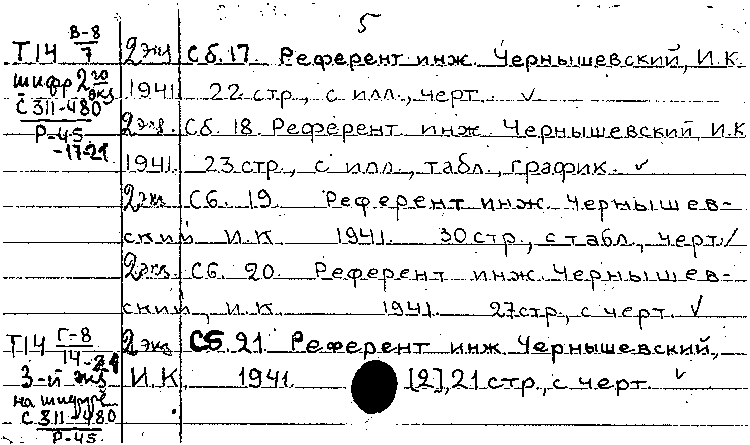 5
Т14 В-8/7 2 экз Сб. 17. Референт инж. Чернышевский, И.К.
шифр 2го экз 1941. 22 стр., с илл., черт. ✓
С311-480 2 экз. Сб. 18. Референт инж. Чернышевский, И.К
Р-45 -17-21 1941. 23 стр., с илл., табл., график. ✓
2 экз Сб. 19. Референт инж. Чернышев-
ский И.К 1941. 30 стр., с табл., черт. ✓
2 экз. Сб. 20. Референт инж. Чернышев-
ский, И.К. 1941. 27 стр., с черт. ✓
Т14 Г-8/14-21 2 экз Сб. 21. Референт инж Чернышевский,
3-й экз И.К. 1941. [2], 21 стр., с черт. ✓
на шифре
С 311-480
Р-45